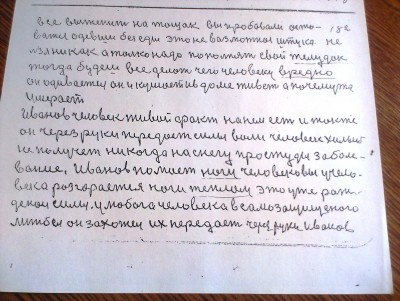 все вытежит на тощак вы пробовали оста- где
вати одевши беседи это не возмотнои штука не
лзяникак а толко надо поломят свой желудок
тогда будеш все делот чего человеку вредно
он одивает и он и кушает и в доме живет а почему же
умерает
Иванов человек живой факт на нем ест и тоже
он через руки передает силы воли человек хилит
не получет никогда на снегу простуди заболе-
вание. Иванов полмает ноги человековы у чело-
века разгораетса ноги теплом это уже раж-
деной силы. у любога человека в самозащищеного
он захожет их передает через руки Иванов